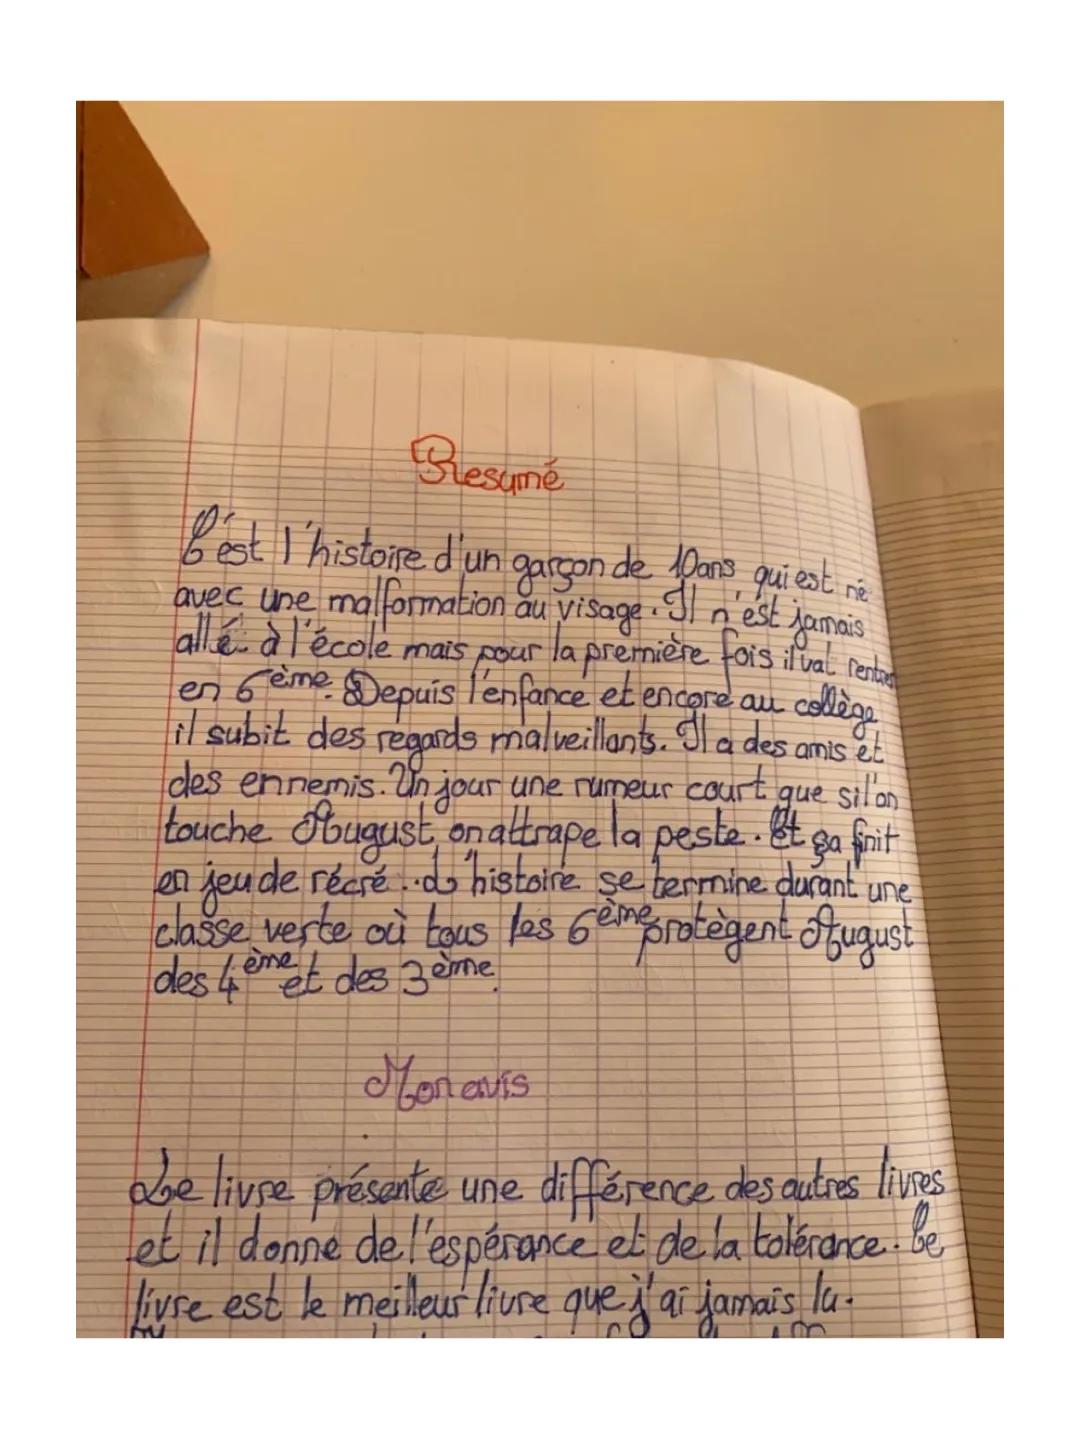 Resumé
C'est l'histoire d'un garçon de 10ans qui est né
avec une malformation au visage. Il n'est jamais
allé à l'école mais pour la première fois il vat rentrer
en 6ème. Depuis l'enfance et encore au collège
il subit des regards malveillants. Il a des amis et
des ennemis. Un jour une rumeur court que si l'on
touche August, on attrape la peste. Et ça finit
en jeu de récré.. L'histoire se termine durant une
classe verte où tous les 6ème protègent August
des 4ème et des 3ème.
Mon avis
Le livre présente une différence des autres livres
et il donne de l'espérance et de la tolérance. Ce
livre est le meilleur livre que j'ai jamais lu.